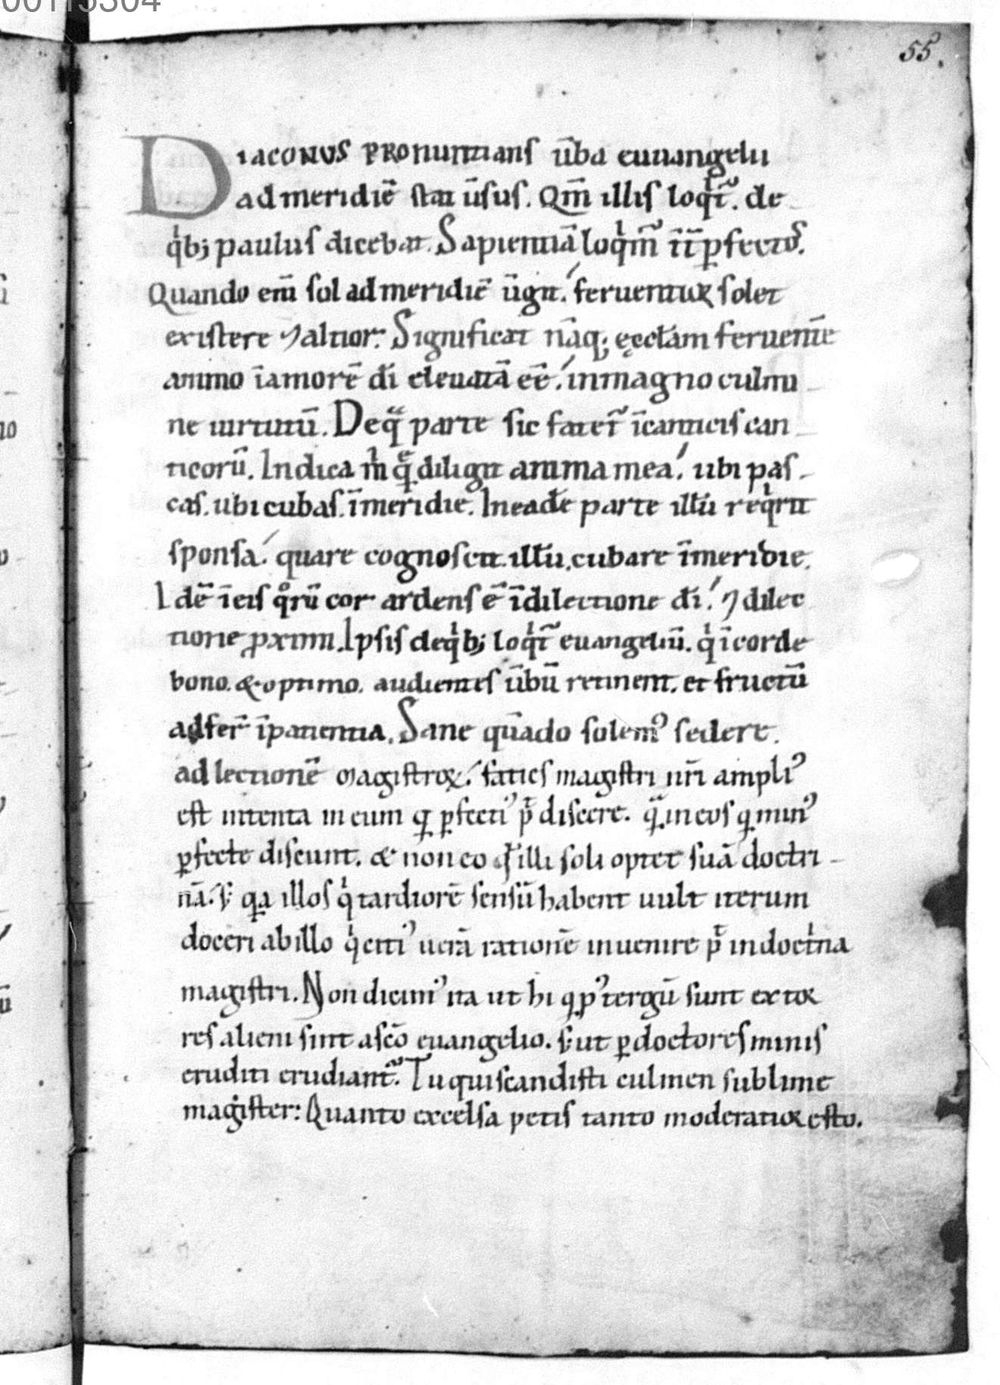 55.
DIACONUS PRONuntians ūba euuangelii
ad meridiē stat ūsus. Qm̄ illis loqͥt̄. de
qͥb; paulus dicebat. Sapientiā loqͥm̄ īt̄ ꝑfectos.
Quando enī sol ad meridiē ūgit. feruentiꝰ solet
existere ⁊ altior. Significat nāq; ęcclām feruentē
animo īamorē dī eleuatā eē. in magno culmi
ne uirtutū. De qͣ parte sic fatet̄ īcanticis can
ticorū. Indica m̄ qͣē diligit anima mea. ubi pas
cas. ubi cubas. īmeridie. In eadē parte illū reqͥrit
sponsa. quare cognoscit illū. cubare īmeridie.
Idē īeis qͦrū cor ardens ē īdilectione dī. ⁊ dilec
tione ꝓximi. Ipsis deqͥb; loqͥt̄ euangeliū. qͥ īcorde
bono. & optimo. audientes ūbū retinent. et fructū
adfer̄ īpatientia. Sane quādo solemꝰ sedere.
ad lectionē magistroꝝ. facies magistri nr̄i ampliꝰ
est intenta in eum qͥ ꝑfectiꝰ p̄t discere. qͣ in eos qͥ minꝰ
ꝑfecte discunt. & non eo qđ illi soli optet suā doctri
nā. s; qͥa illos qͥ tardiorē sensū habent uult iterum
doceri ab illo qͥ citiꝰ uerā rationē inuenire p̄t in doctͥna
magistri. Non dicimꝰ ita ut hi qͥ pꝰ tergū sunt extoꝛ
res alieni sint a scō euangelio. s; ut ꝑ doctores minis
eruditi erudiant̄. Tu qui scandisti culmen sublime
magister: Quanto excelsa petis tanto moderatior esto.